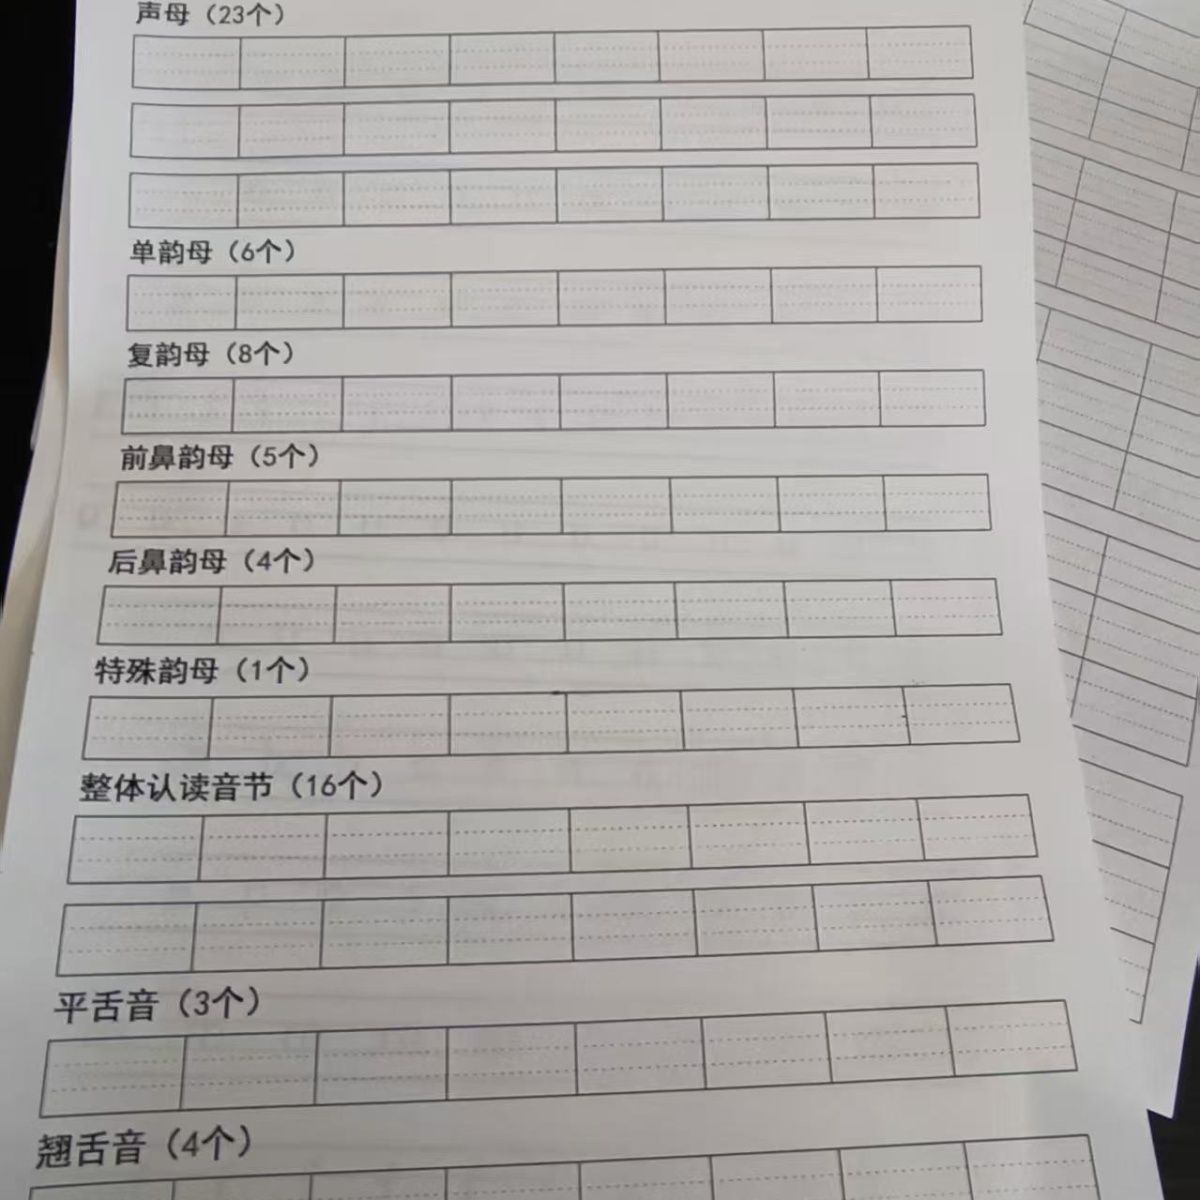 声母（23个）
单韵母（6个）
复韵母（8个）
前鼻韵母（5个）
后鼻韵母（4个）
特殊韵母（1个）
整体认读音节（16个）
平舌音（3个）
翘舌音（4个）